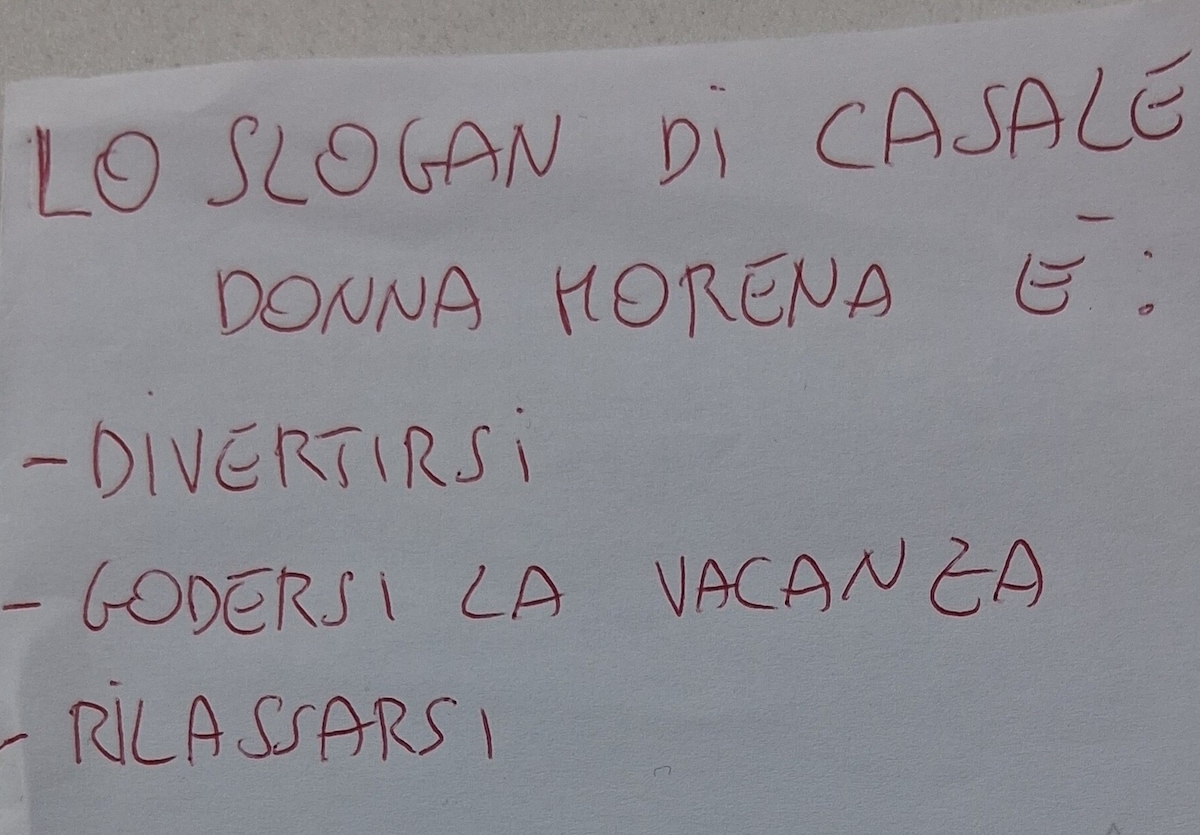 LO SLOGAN Di CASALE
DONNA MORENA È:
- DIVERTIRSi
- GODERSI LA VACANZA
- RiLASSARSI